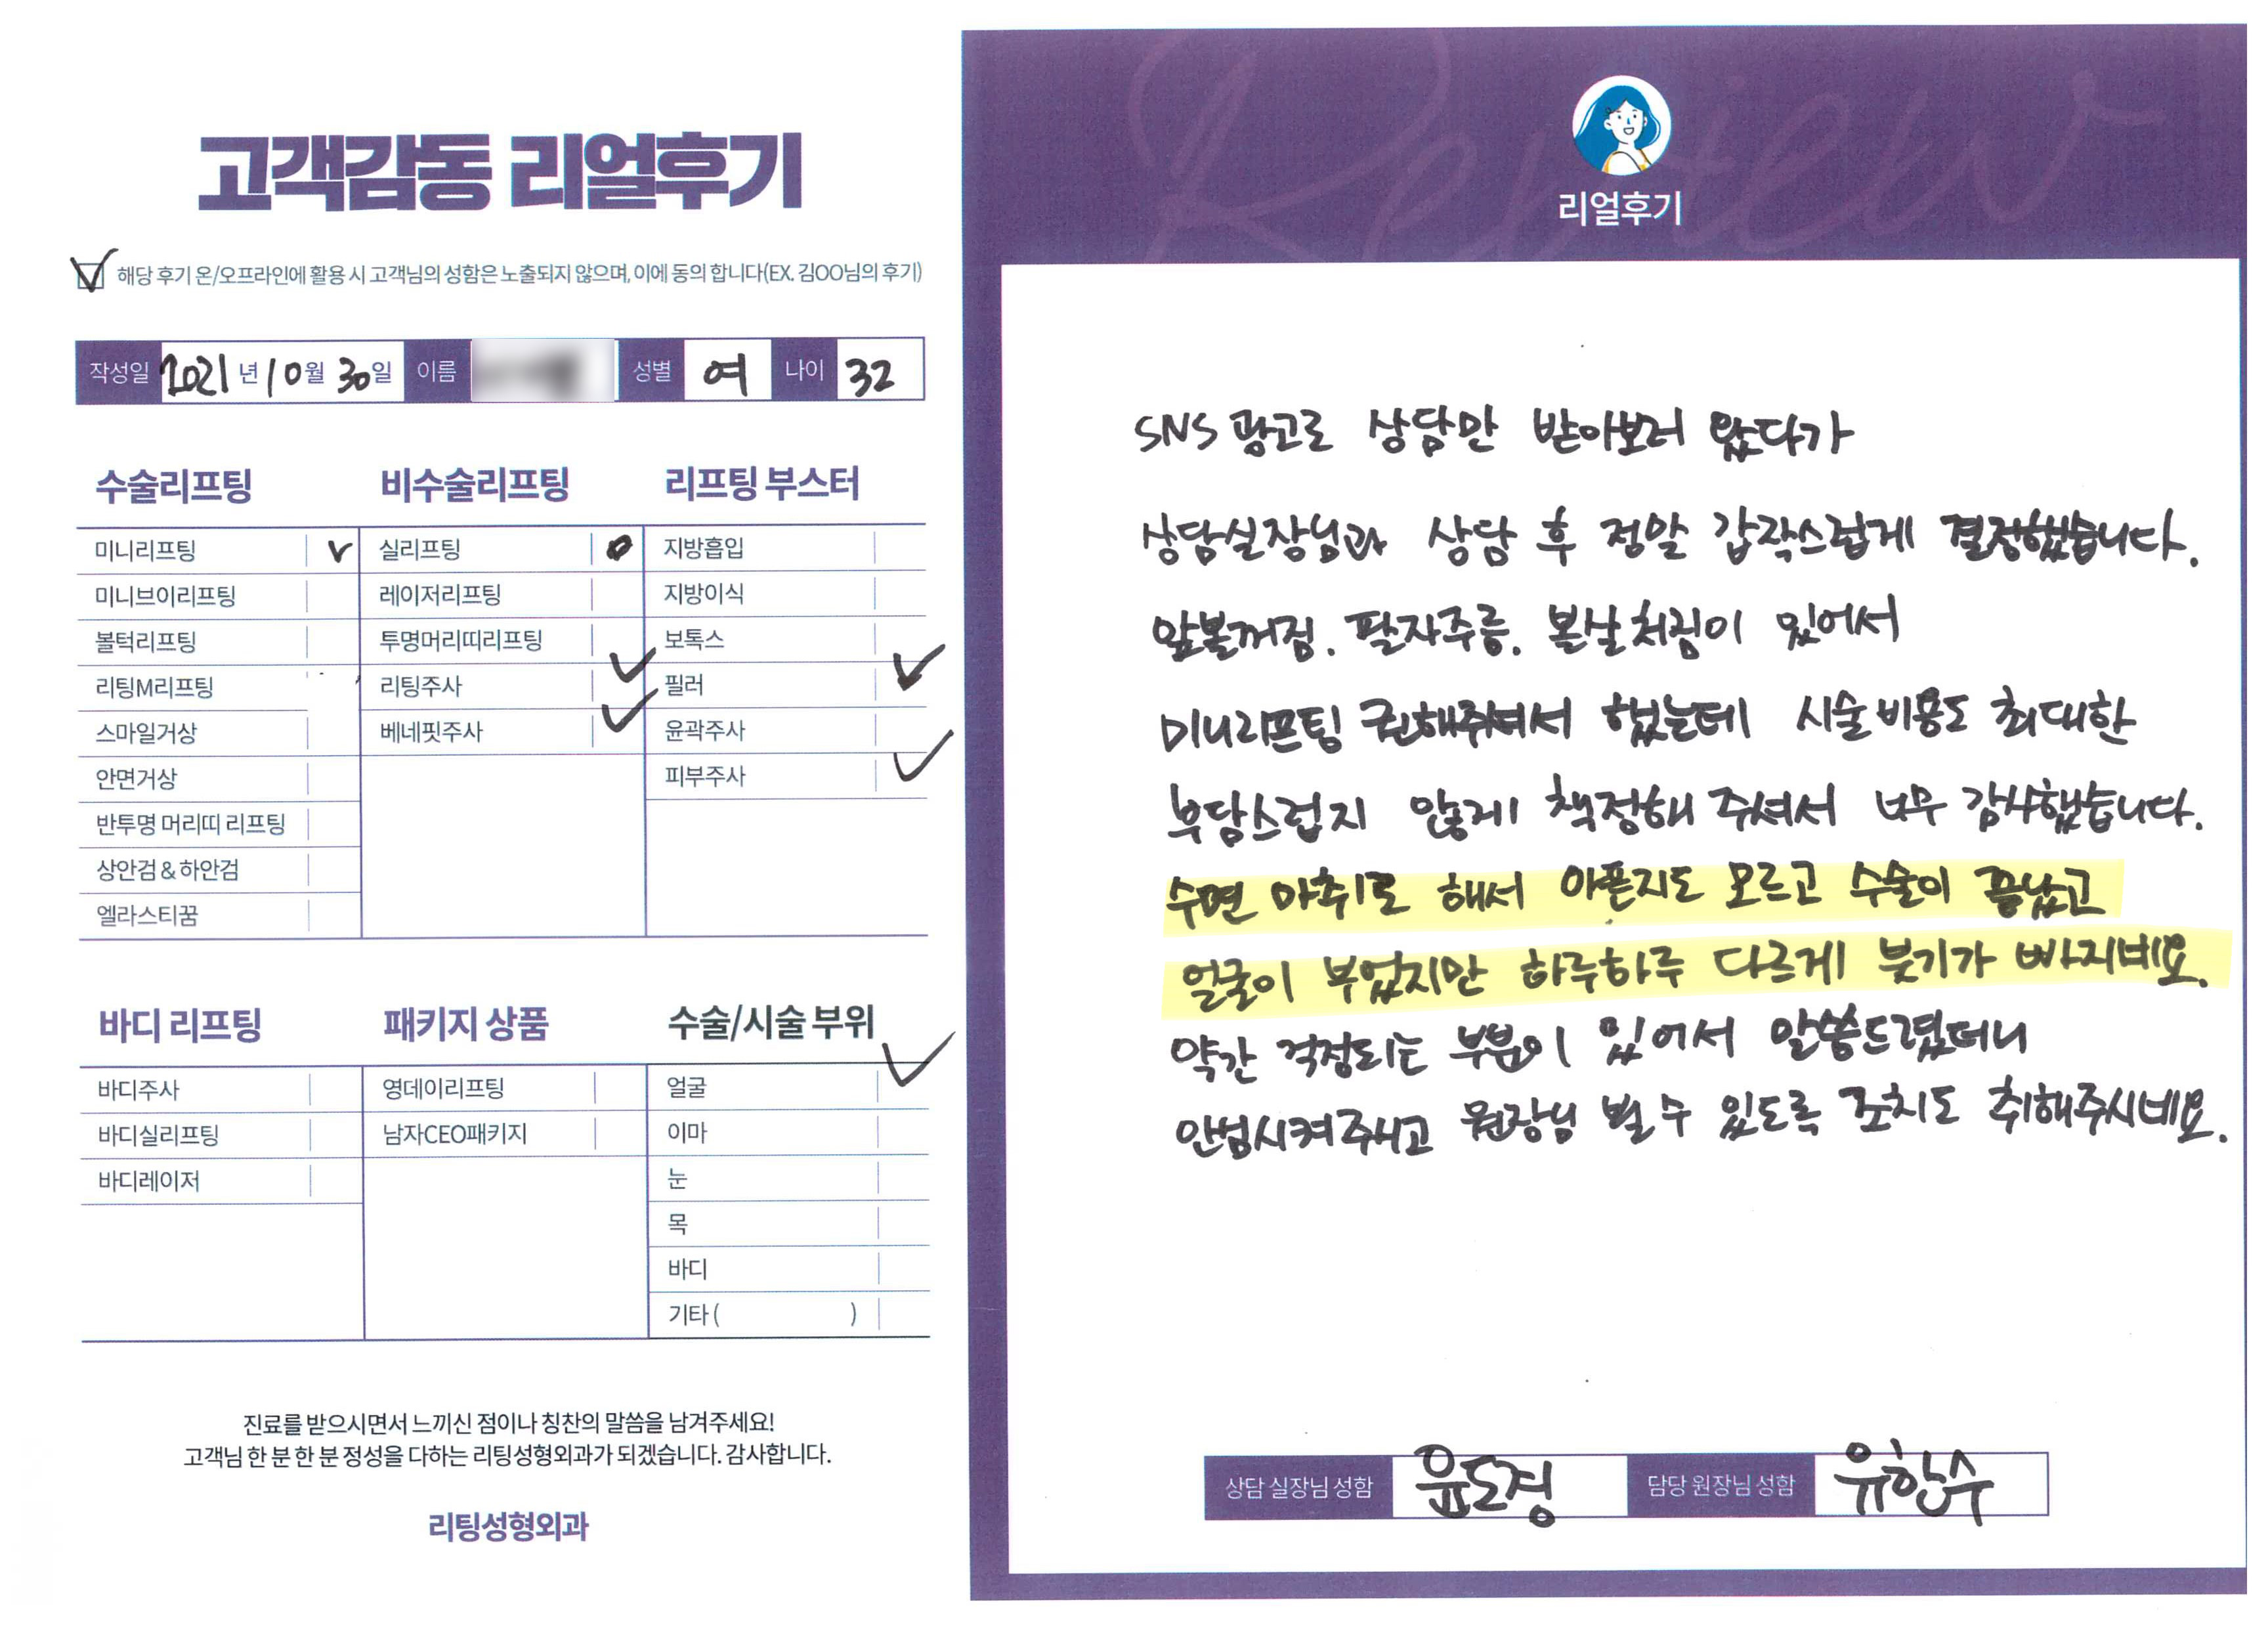 고객감동 리얼후기
해당 후기 온/오프라인에 활용 시 고객님의 성함은 노출되지 않으며, 이에 동의 합니다(EX. 김OO님의 후기)
작성일 2021 년 10 월 30 일 이름 성별 여 나이 32
수술리프팅
미니리프팅
미니브이리프팅
볼턱리프팅
리팅M리프팅
스마일거상
안면거상
반투명 머리띠 리프팅
상안검 & 하안검
엘라스티꿈
비수술리프팅
실리프팅
레이저리프팅
투명머리띠리프팅
리팅주사
베네핏주사
리프팅 부스터
지방흡입
지방이식
보톡스
필러
윤곽주사
피부주사
바디 리프팅
바디주사
바디실리프팅
바디레이저
패키지 상품
영데이리프팅
남자CEO패키지
수술/시술 부위
얼굴
이마
눈
목
바디
기타 ( )
진료를 받으시면서 느끼신 점이나 칭찬의 말씀을 남겨주세요!
고객님 한 분 한 분 정성을 다하는 리팅성형외과가 되겠습니다. 감사합니다.
리팅성형외과
Review
리얼후기
SNS 광고로 상담만 받아보러 왔다가
상담실장님과 상담 후 정말 갑작스럽게 결정했습니다.
앞볼꺼짐. 팔자주름. 볼살처짐이 있어서
미니리프팅 권해주셔서 했는데 시술비용도 최대한
부담스럽지 않게 책정해 주셔서 너무 감사했습니다.
수면 마취로 해서 아픈지도 모르고 수술이 끝났고
얼굴이 부었지만 하루하루 다르게 붓기가 빠지네요.
약간 걱정되는 부분이 있어서 말씀드렸더니
안심시켜주시고 원장님 뵐 수 있도록 조치도 취해주시네요.
상담 실장님 성함 윤도경 담당 원장님 성함 유한수